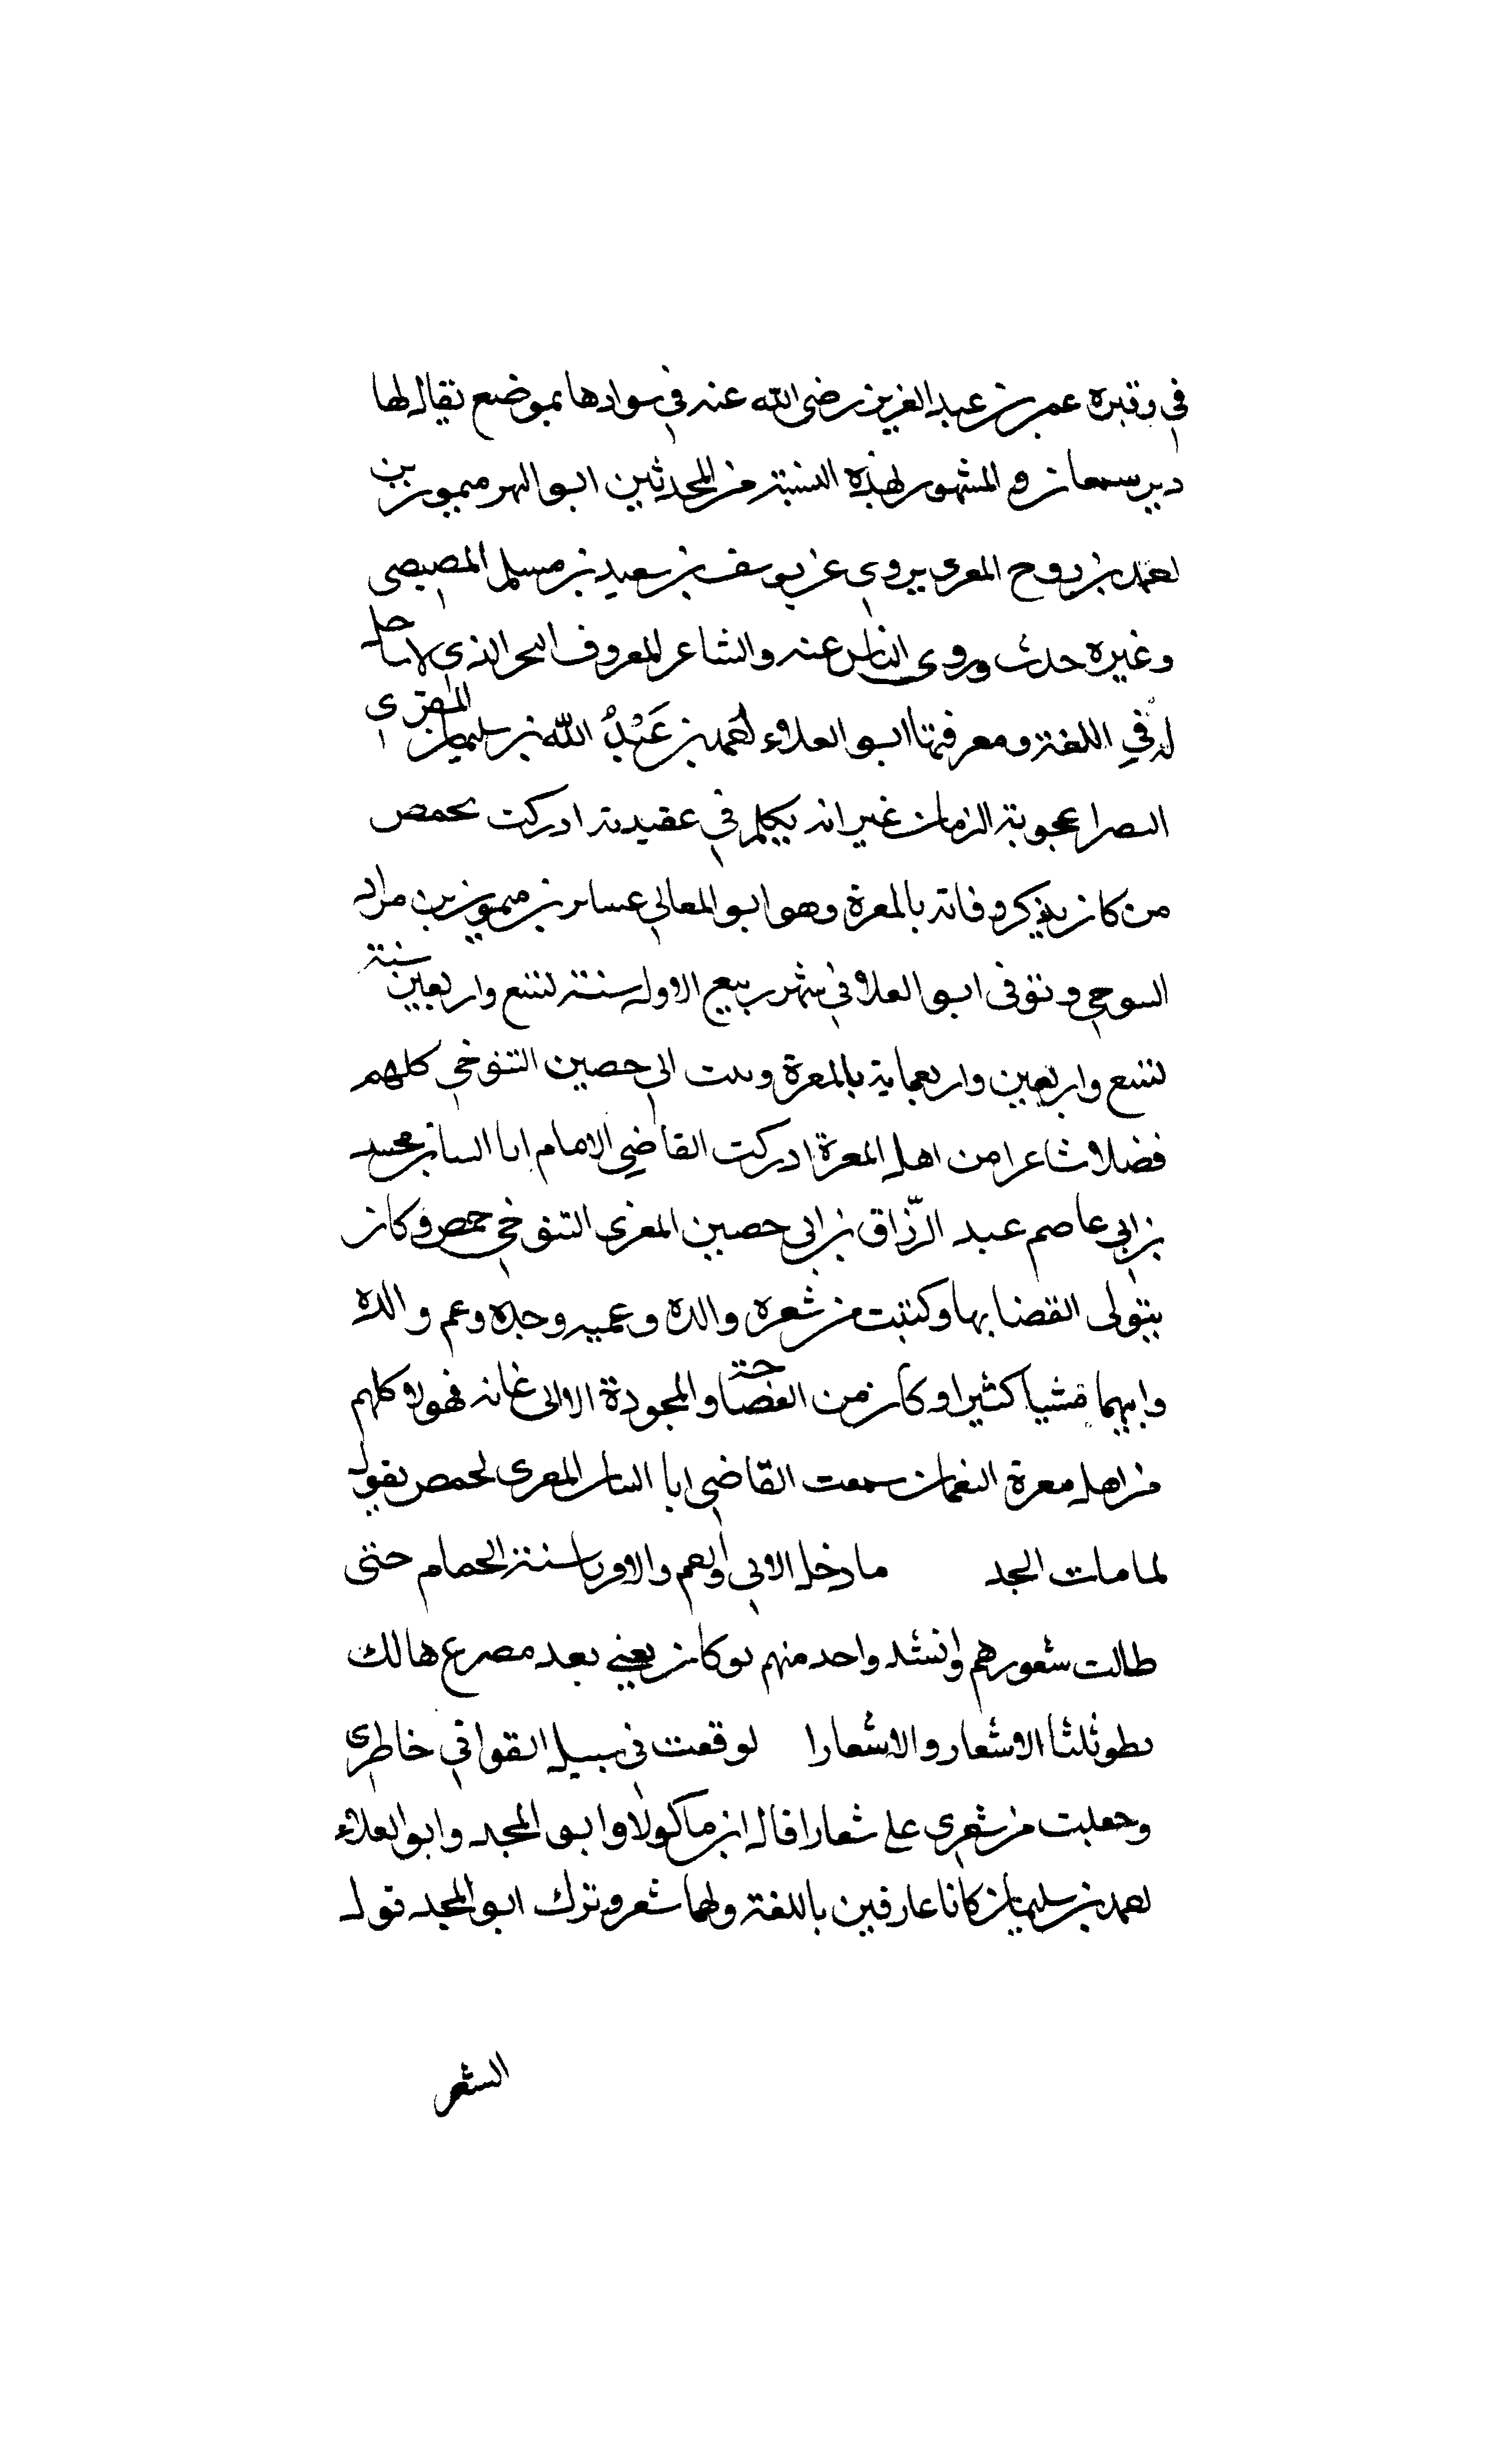 في وقبره عمر بن عبد العزيز رضى الله عنه في سوادها بموضع يقال لها
دير سمعان والمشهور بهذه النسبة من المحدثين ابو الهر ميمون بن
احمد بن روح المعرى يروي عن يوسف بن سعيد بن مسلم المصيصى
وغيره حدث وروى الناس عنه والشاعر المعروف البحر الذي لا ساحل
له في اللغة ومعرفتها ابو العلاء احمد بن عَبْدُ الله بن سليمان المقرى
البصر اعجوبة الزمان غير انه يكلم في عقيدته ادركت بحمص
من كان يذكر وفاته بالمعرة وهو ابو المعالي عساىر بن ميمون بن مراد
السوجي وتوفى ابو العلا في شهر ربيع الاول سنة تسع واربعين سنة
تسع واربعين واربعماية بالمعرة وبيت ابي حصين التنوخي كلهم
فضلا شاعرا من اهل المعرة ادركت القاضي الامام ابا البيان محمد
بن ابي عاصم عبد الرّزاق بن ابي حصين المعرى التنوخي حمص وكان
يتولى القضا بها وكتبت من شعره والده وعميه وجده وعم والده
وابيهما شيا كثيرا وكان من الفصاحة والمجودة الا الى غانه فهولا كلهم
من اهل معرة النعمان سمعت القاضي ابا البيان المعرى بحمص يقول
لما مات الجد ما دخل الابي والعم والاقربا سنة الحمام حتى
طالت شعورهم وانشد واحد منهم لو كان يغني بعد مصرع هالك
بطو ثلثا الاشعار والاشعارا لوقعت في سبيل القوافي خاطرى
وجعلت من شعري على شعارا قال ابن ماكولا وابو المجد وابو العلاء
احمد بن سليمان كانا عارفين باللغة ولهما شعر وترك ابو المجد قول
الشعر